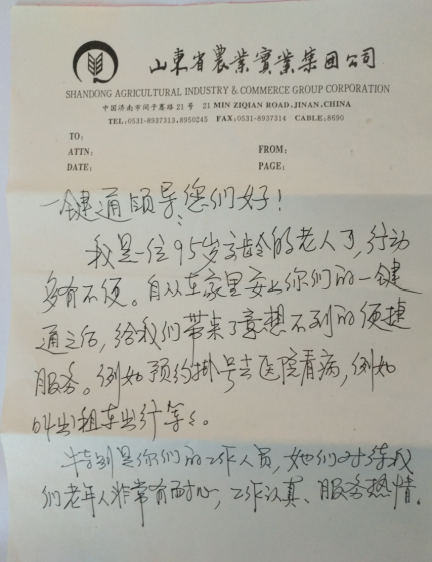 山东省农业实业集团公司
SHANDONG AGRICULTURAL INDUSTRY & COMMERCE GROUP CORPORATION
中国济南市闵子骞路21号 21 MIN ZIQIAN ROAD.JINAN.CHINA
TEL:0531-8937313.8950245 FAX.0531-8937314 CABLE:8690
TO:
ATTN: FROM:
DATE: PAGE:
一键通领导：您们好！
我是一位95岁高龄的老人了，行动
多有不便。自从在家里安上你们的一键
通之后，给我们带来了意想不到的便捷
服务。例如预约掛号去医院看病，例如
叫出租车出行等々。
特别是你们的工作人员，她们对待我
们老年人非常有耐心，工作认真、服务热情。